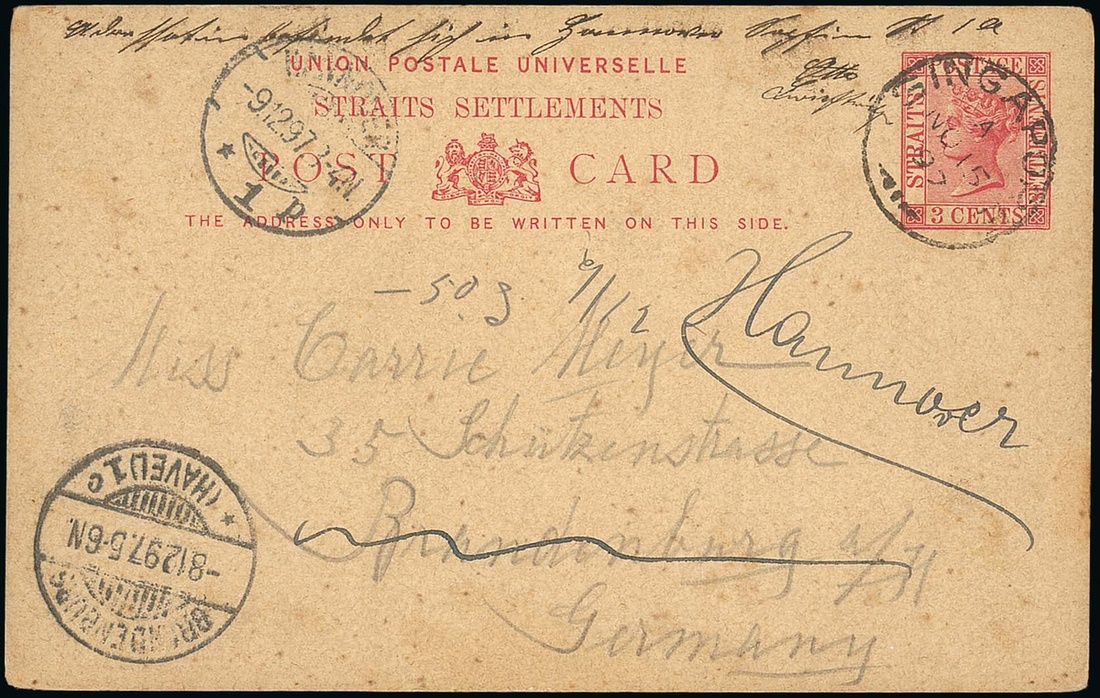 Adressatin befindet sich in Hannover Sophien St 1a
Otto
UNION POSTALE UNIVERSELLE
STRAITS SETTLEMENTS
POST CARD
THE ADDRESS ONLY TO BE WRITTEN ON THIS SIDE.
POSTAGE
STRAITS SETTLEMENTS
3 CENTS
SINGAPORE
A
NO 15
97
HANNOVER
-9.12.97. 3-4N.
* 1 p
- 50 g 6/12
Hannover
Miss Carrie Meyer
35 Schützenstrasse
Brandenburg a/H
Germany
BRANDENBURG
-8.12.97. 5-6N.
* (HAVEL) 1 c